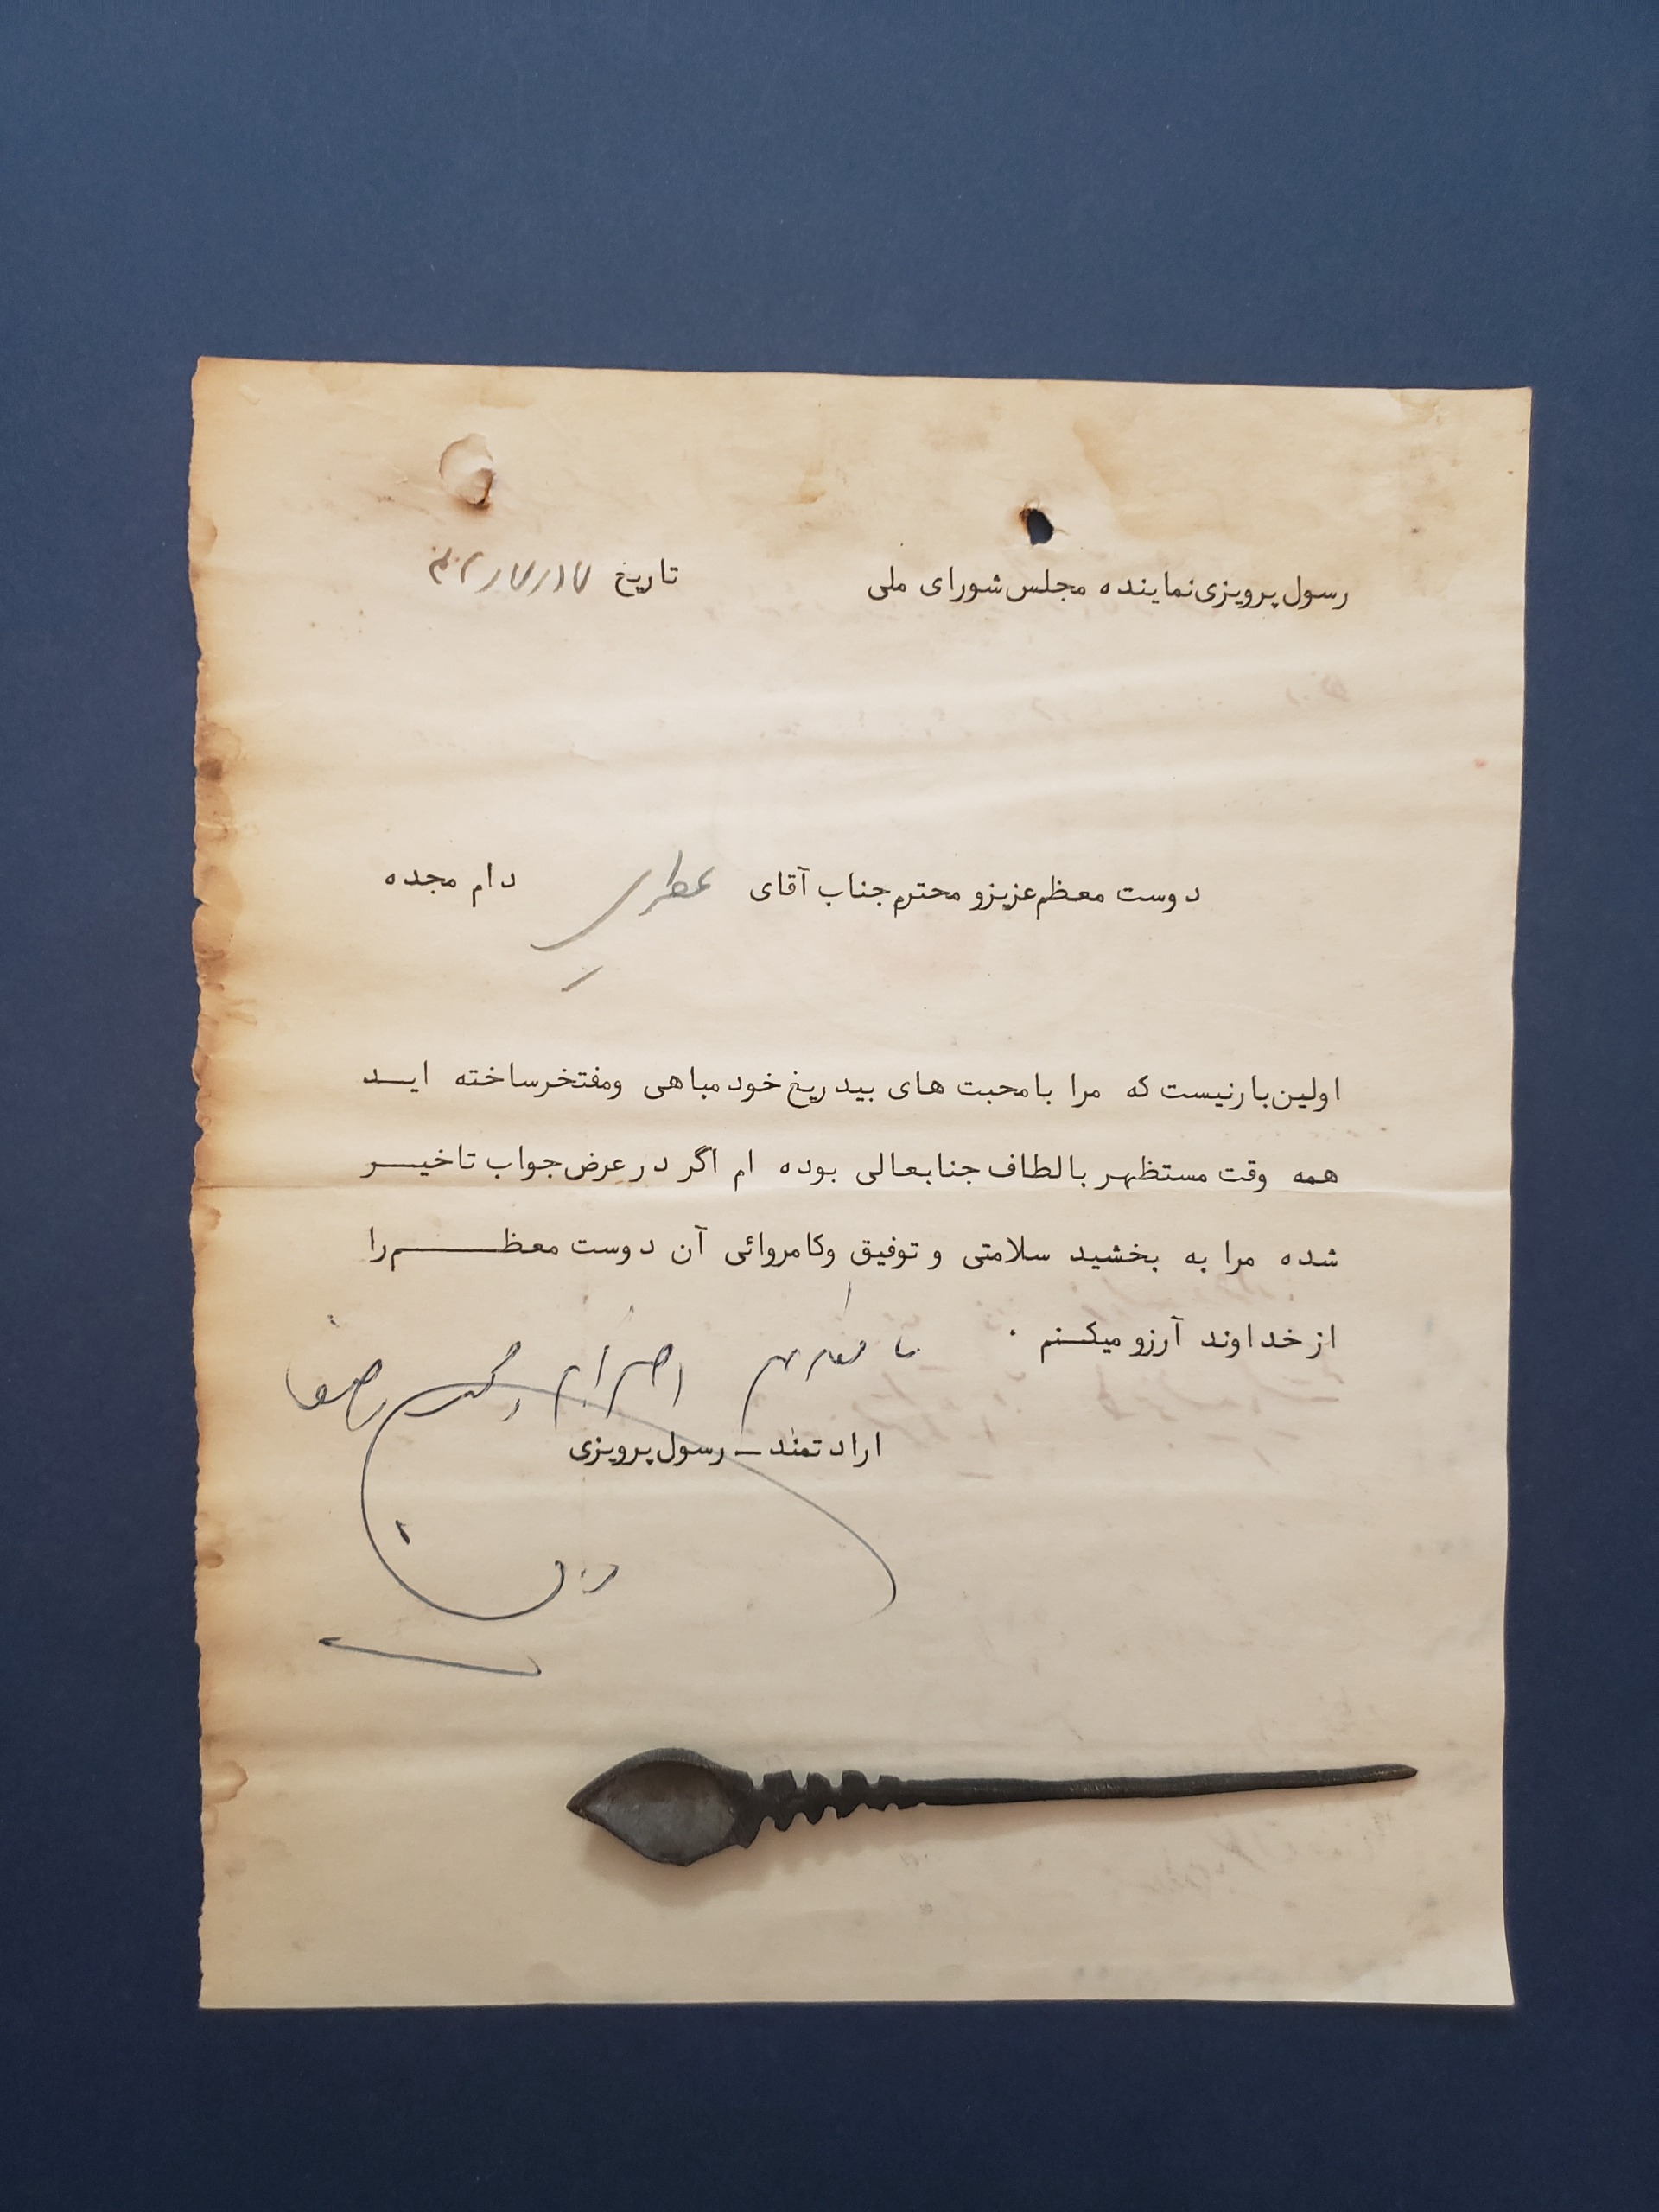 رسول پرویزی نماینده مجلس شورای ملی
تاریخ
دوست معظم عزیز و محترم جناب آقای عطری دام مجده
اولین بار نیست که مرا با محبت های بیدریغ خود مباهی ومفتخر ساخته ایـد
همه وقت مستظهر بالطاف جنابعالی بوده ام اگر در عرض جواب تاخیـر
شده مرا به بخشید سلامتی و توفیق وکامروائی آن دوست معظـم را
از خداوند آرزو میکـنم .
با احترام
ارادتمند ـ رسول پرویزی